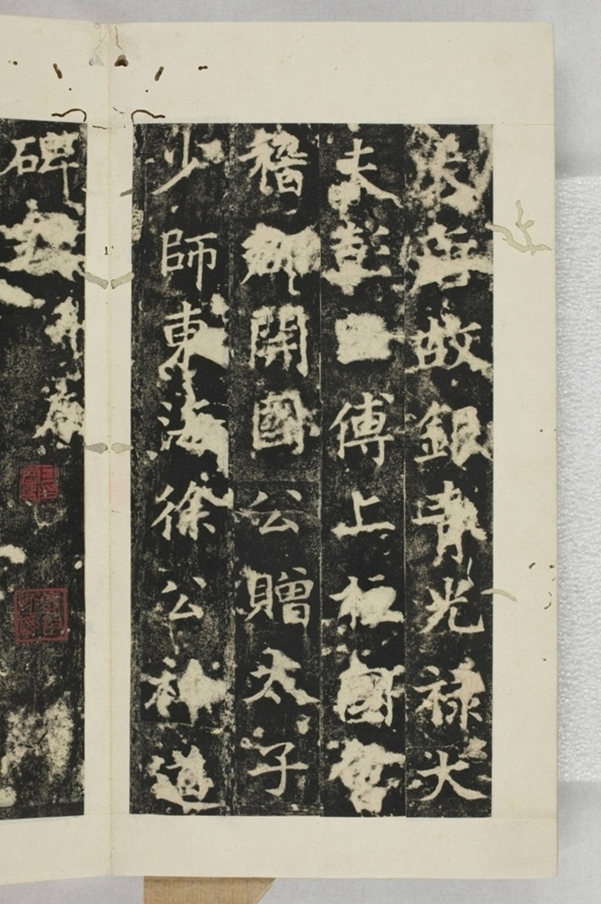 故銀青光禄大
夫彭王傅上柱國會
稽郡開國公贈太子
少師東海徐公神道
碑銘